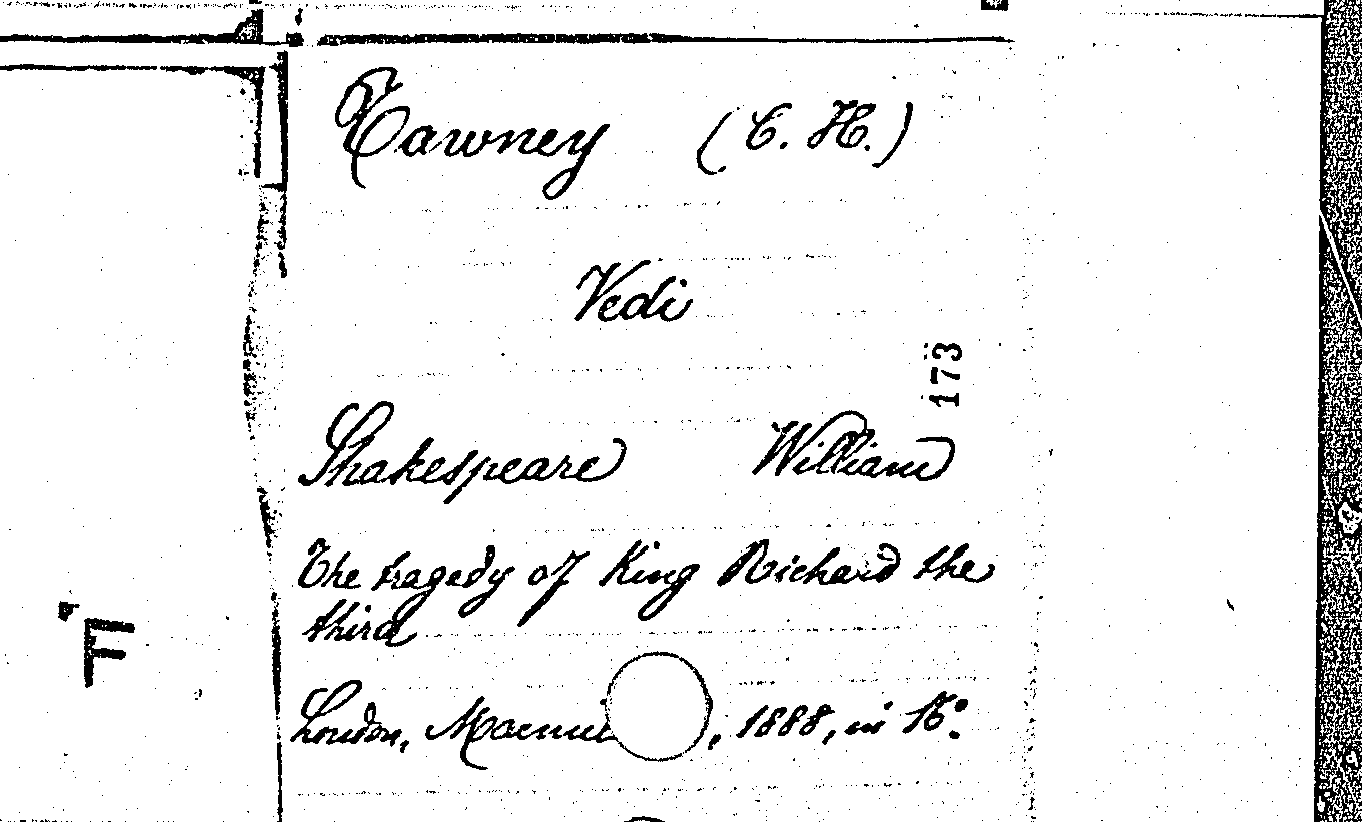 Tawney (C. H.)
Vedi
173
Shakespeare William
The tragedy of King Richard the
third
London, , 1888, in 16º.
F